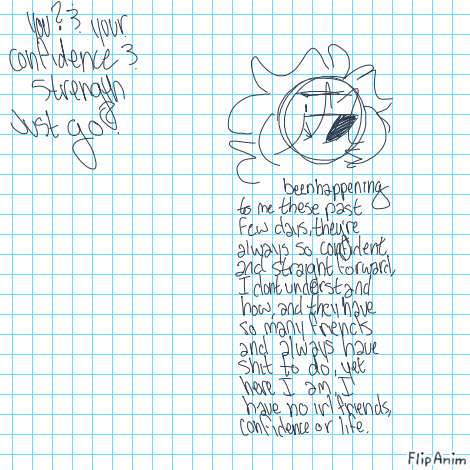 you?? your
confidence?
strength
Just go?
been happening
to me these past
few days, they're
always so confident
and straight forward,
I dont understand
how, and they have
so many friends
and always have
shit to do, yet
here I am, I
have no irl friends,
confidence or life.
FlipAnim